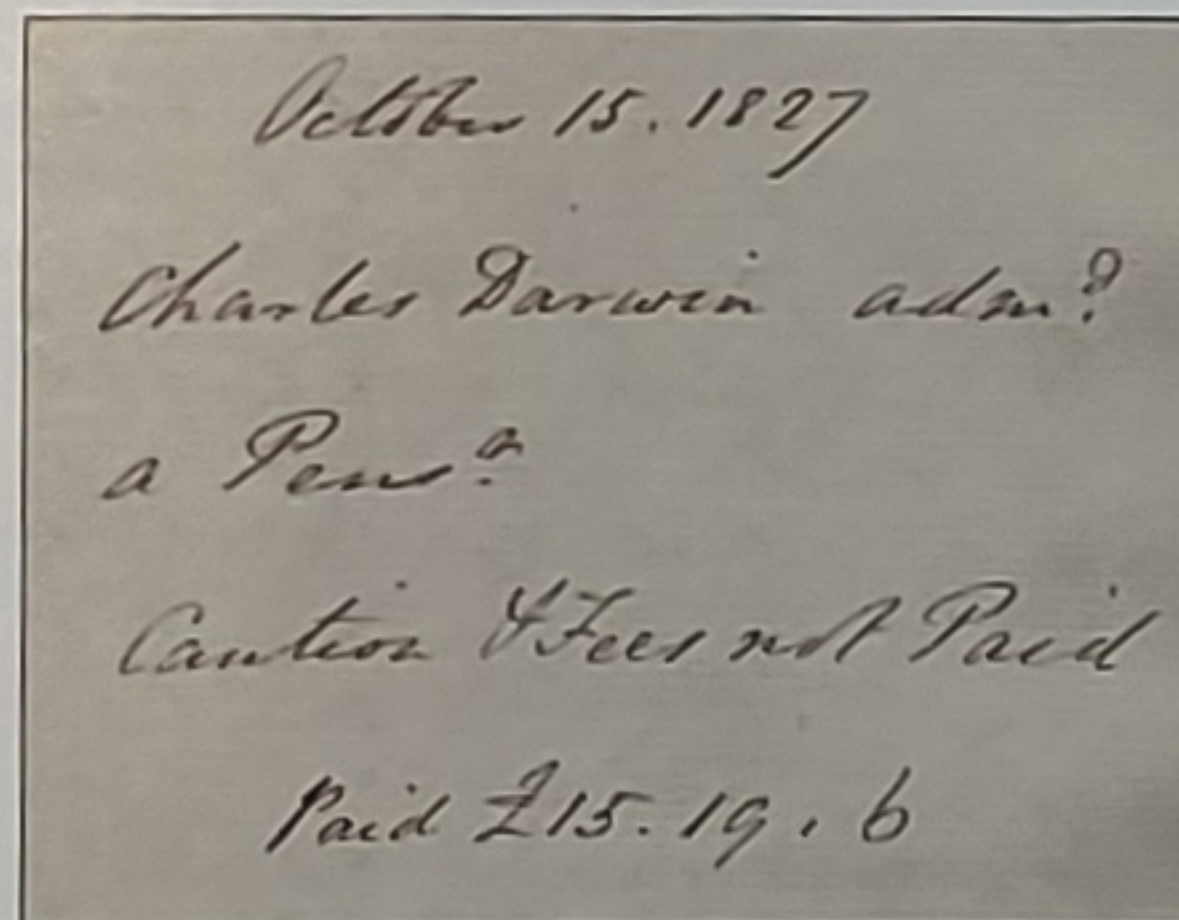 October 15. 1827
Charles Darwin adm.d
a Pens.r
Caution & Fees not Paid
Paid £15. 19. 6